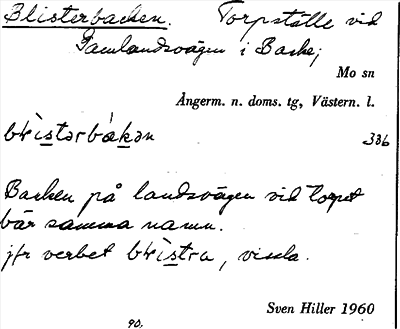 Blisterbacken. Torpställe vid
Gamlandsvägen i Backe;
Mo sn
Ångerm. n. doms. tg, Västern. l.
336
Backen på landsvägen vid torpet
bär samma namn.
jfr verbet , vissla.
Sven Hiller 1960
90.